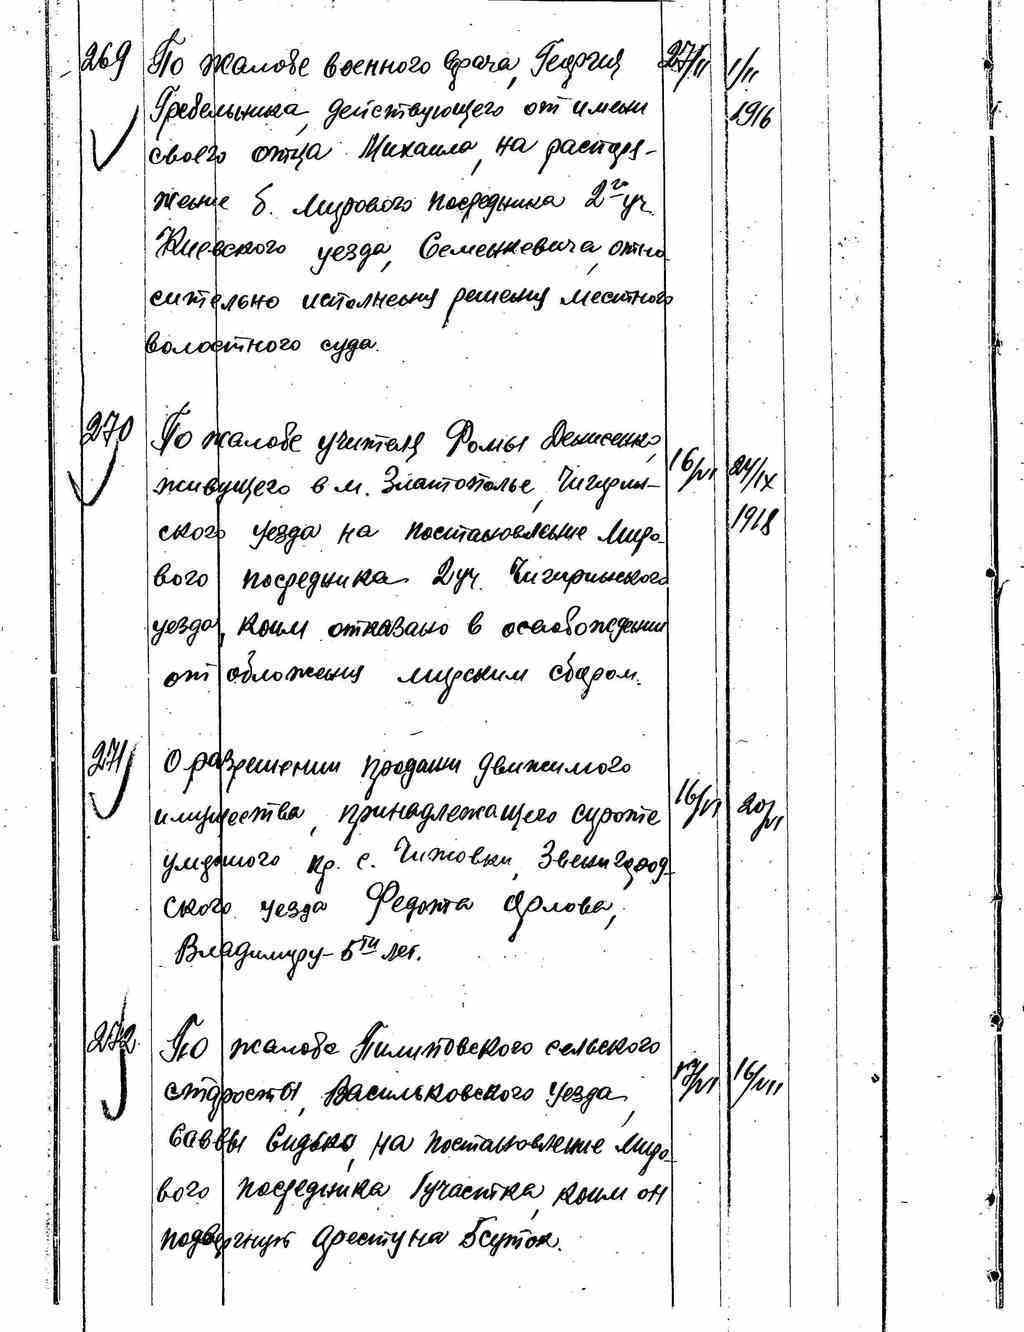 269 По жалобе военного врача, Георгия 27/II 1/II
Гребельника, действующего от имени 1916
своего отца Михаила, на распоря-
жение б. мирового посредника 2го уч.
Киевского уезда, Семенкевича, отно-
сительно исполнения решения местного
волостного суда.
270 По жалобе учителя Фомы Денисенко,
живущего в м. Златополье, Чигирин- 16/VI 24/IX
ского уезда на постановление Миро- 1918
вого посредника 2 уч. Чигиринского
уезда, коим отказано в освобождении
от обложения мирским сбором.
271 О разрешении продажи движимого
имущества, принадлежащего сироте 16/VI 20/VI
умершого кр. с. Чижовки, Звенигород-
ского уезда Федота Орлова,
Владимиру - 5ти лет.
272 По жалобе Пилиповского сельского
старосты, Васильковского уезда, 17/VI 16/VII
Саввы на постановление Миро-
вого посредника 1 участка, коим он
подвергнут аресту на 5 суток.